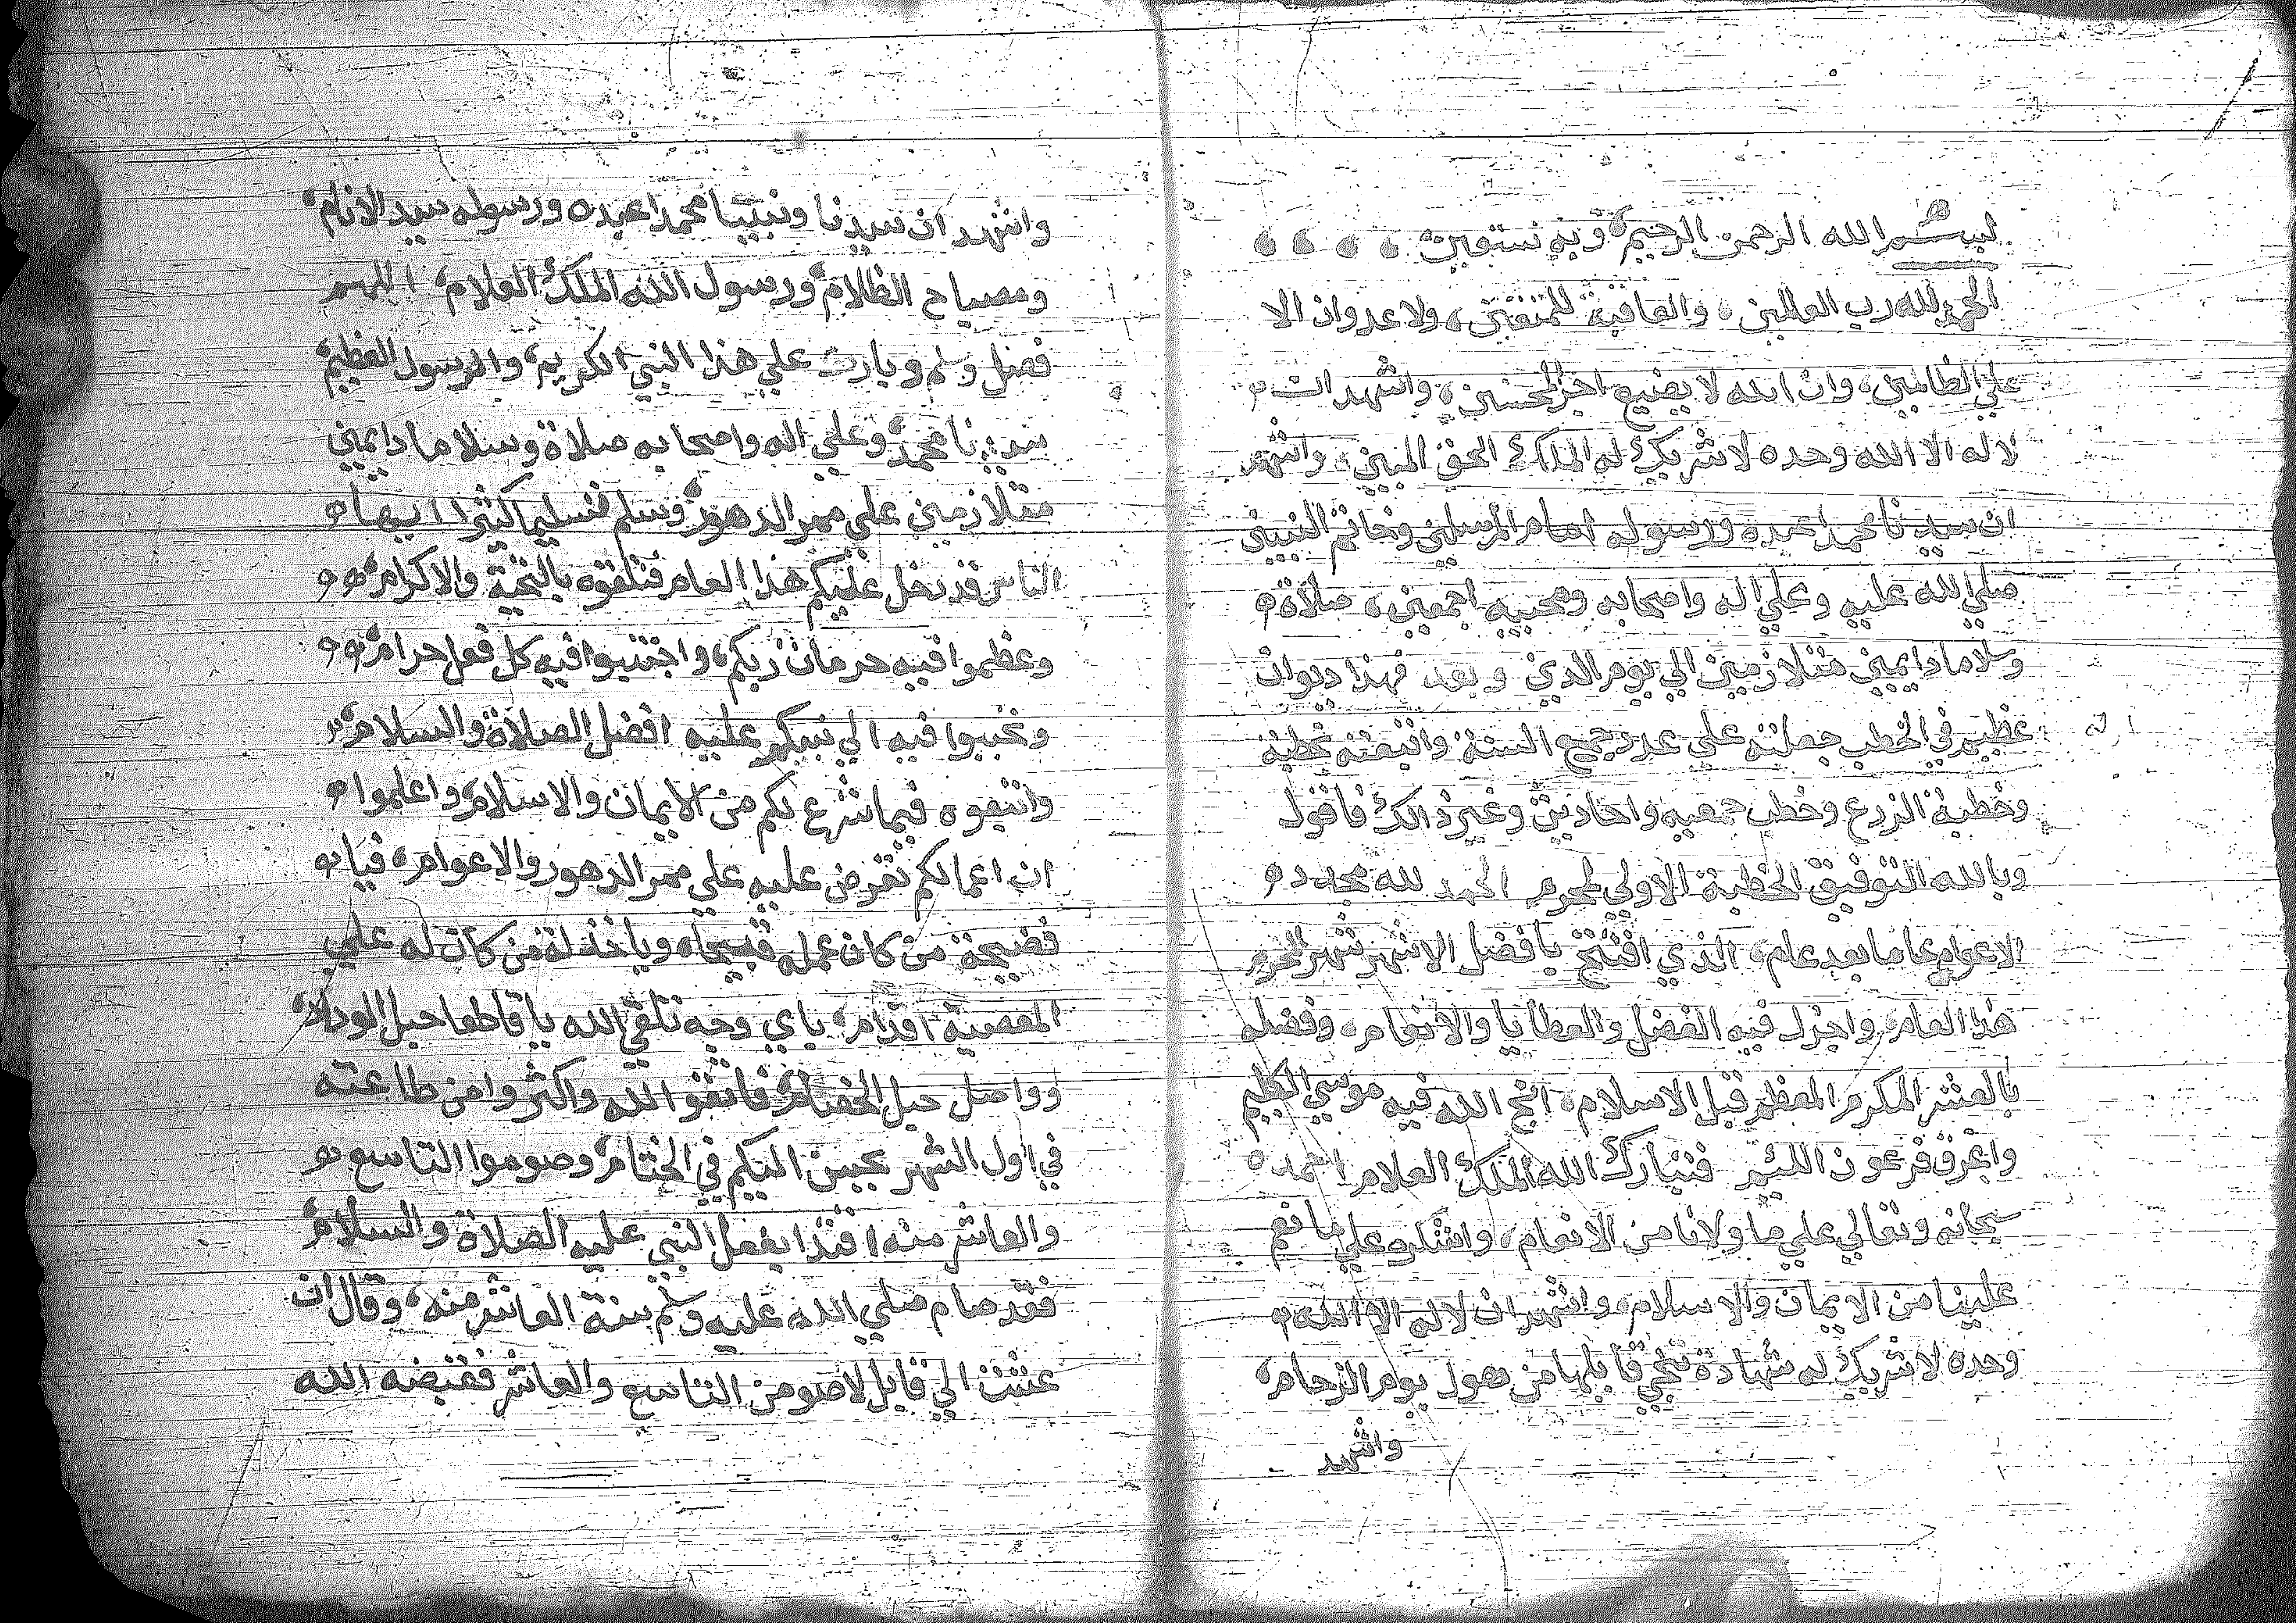 بسم الله الرحمن الرحيم وبه نستعين
الحمد لله رب العالمين، والعاقبة للمتقين، ولا عدوان الا
علي الظالمين، وان الله لا يضيع اجر المحسنين، واشهد ان
لا له الا الله وحده لا شريك له الملك الحق المبين، واشهد
ان سيدنا محمدا عبده ورسوله امام المرسلين وخاتم النبيين
صلي الله عليه وعلي اله واصحابه ومحبيه اجمعين، صلاة
وسلاما دايمين متلازمين الي يوم الدين وبعد فهذا ديوان
عظيم في الخطب جعلته علي عدد جمع السنة واتبعته بخطبة
وخطبة الزرع وخطب جمعيه واحاديث وغير ذالك فاقول
وبالله التوفيق الخطبة الاولي لمحرم الحمد لله مجدد
الاعوام عاما بعد عام، الذي افتتح بافضل الاشهر شهر المحرم
هذا العام، واجزل فيه الفضل والعطايا والانعام، وفضله
بالعشر المكرم المعظم قبل الاسلام، انج الله فيه موسي الكليم
واغرق فرعون اللئيم فتبارك الله الملك العلام احمده
سبحانه وتعالي علي ما ولانا من الانعام، واشكره علي ما نعم
علينا من الايمان والاسلام، واشهد ان لا له الا الله
وحده لا شريك له شهادة تنجي قايلها من هول يوم الزحام،
واشهد
واشهد ان سيدنا ونبينا محمدا عبده ورسوله سيد الانام،
ومصباح الظلام، ورسول الله الملك العلام، اللهم
فصل وسلم وبارك علي هذا النبي الكريم، والرسول العظيم،
سيدنا محمد، وعلي اله واصحابه صلاة وسلاما دايمين
متلازمين علي ممر الدهور، وسلم تسليما كثيرا ايها
الناس قد دخل عليكم هذا العام فتلقوه بالتحية والاكرام،
وعظموا فيه حرمات ربكم، واجتنبوا فيه كل فعل حرام،
وتحببوا فيه الي نبيكم عليه افضل الصلاة والسلام،
واتبعوه فيما شرع لكم من الايمان والاسلام، واعلموا
ان اعمالكم تعرض عليه علي ممر الدهور والاعوام، فيا
فضيحة من كان عمله قبيحا، ويا خذلة من كان له علي
المعصية اقدام، باي وجه تلقي الله يا قاطعا حبل الوداد،
وواصل حبل الخصام، فاتقو الله واكثروا من طاعته
في اول الشهر يحسن اليكم في الختام، وصوموا التاسع
والعاشر منه اقتدا بفعل النبي عليه الصلاة والسلام،
فقد صام صلي الله عليه وسلم سنة العاشر منه، وقال ان
عشت الي قابل لاصومن التاسع والعاشر فقبضه الله